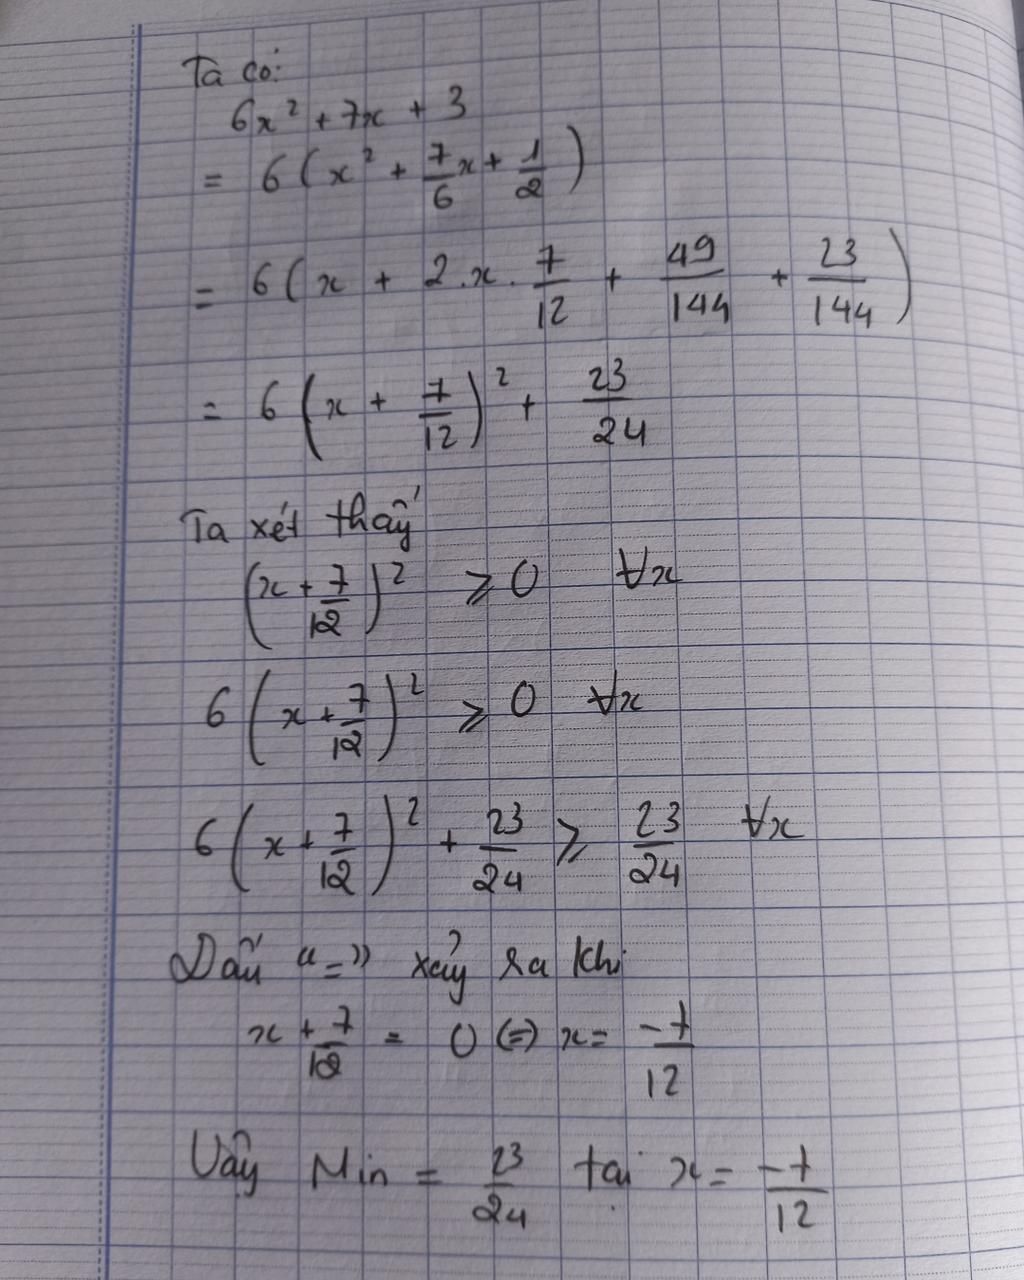 Ta có:
6x² + 7x + 3
= 6(x² + 7/6 x + 1/2)
= 6(x + 2.x. 7/12 + 49/144 + 23/144)
= 6(x + 7/12)² + 23/24
Ta xét thấy
(x + 7/12)² ⩾ 0 ∀x
6(x + 7/12)² ⩾ 0 ∀x
6(x + 7/12)² + 23/24 ⩾ 23/24 ∀x
Dấu "=" xảy ra khi
x + 7/12 = 0 (=) x = -7/12
Vậy Min = 23/24 tại x = -7/12